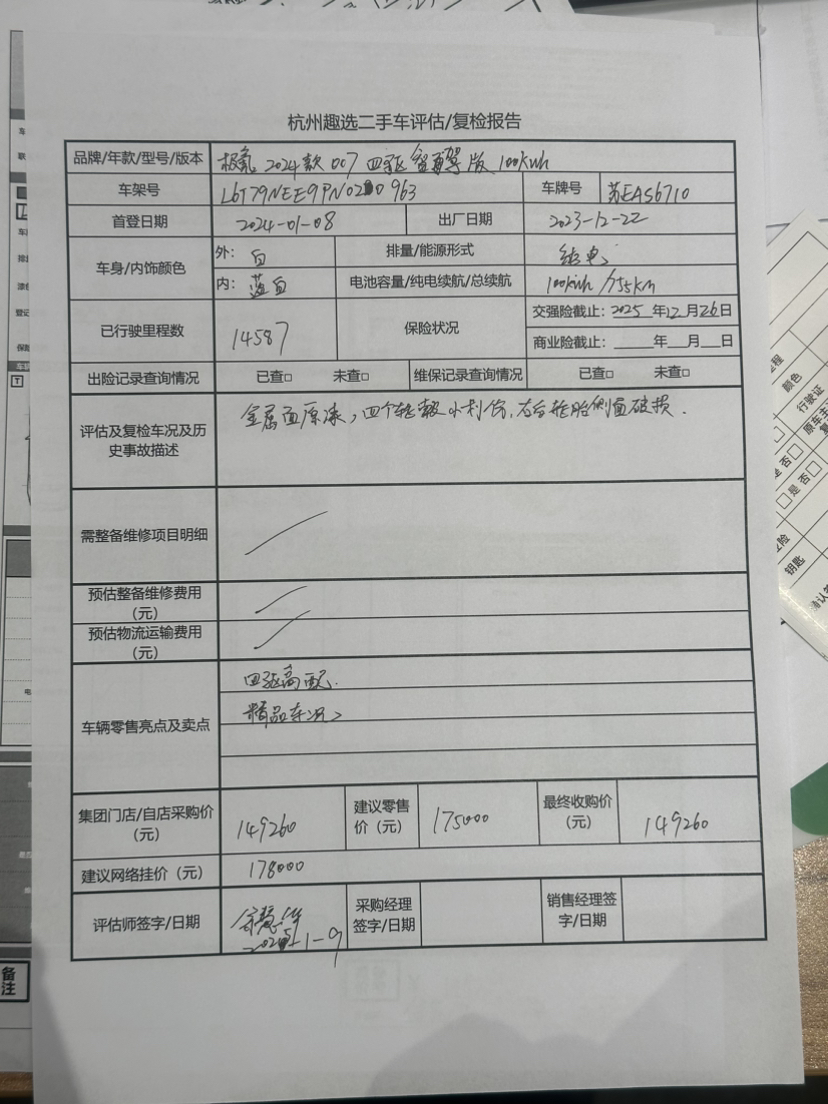 杭州趣选二手车评估/复检报告
品牌/年款/型号/版本 极氪 2024款 007 四驱智驾版 100kwh
车架号 L6T79NEE9PN020963 车牌号 苏EAS6710
首登日期 2024-01-08 出厂日期 2023-12-22
车身/内饰颜色 外: 白 排量/能源形式 纯电
内: 蓝白 电池容量/纯电续航/总续航 100kwh /755km
已行驶里程数 14587 保险状况 交强险截止: 2025 年 12 月 26 日
商业险截止: 年 月 日
出险记录查询情况 已查□ 未查□ 维保记录查询情况 已查□ 未查□
评估及复检车况及历史事故描述 金属面原漆, 四个轮毂小剐伤, 右后轮胎侧面破损.
需整备维修项目明细
预估整备维修费用(元)
预估物流运输费用(元)
车辆零售亮点及卖点 四驱高配.
精品车况
集团门店/自店采购价(元) 149260 建议零售价(元) 175000 最终收购价(元) 149260
建议网络挂价(元) 178000
评估师签字/日期 2025-1-9 采购经理签字/日期 销售经理签字/日期
备注
颜色
行驶证
是 否
是 否
钥匙